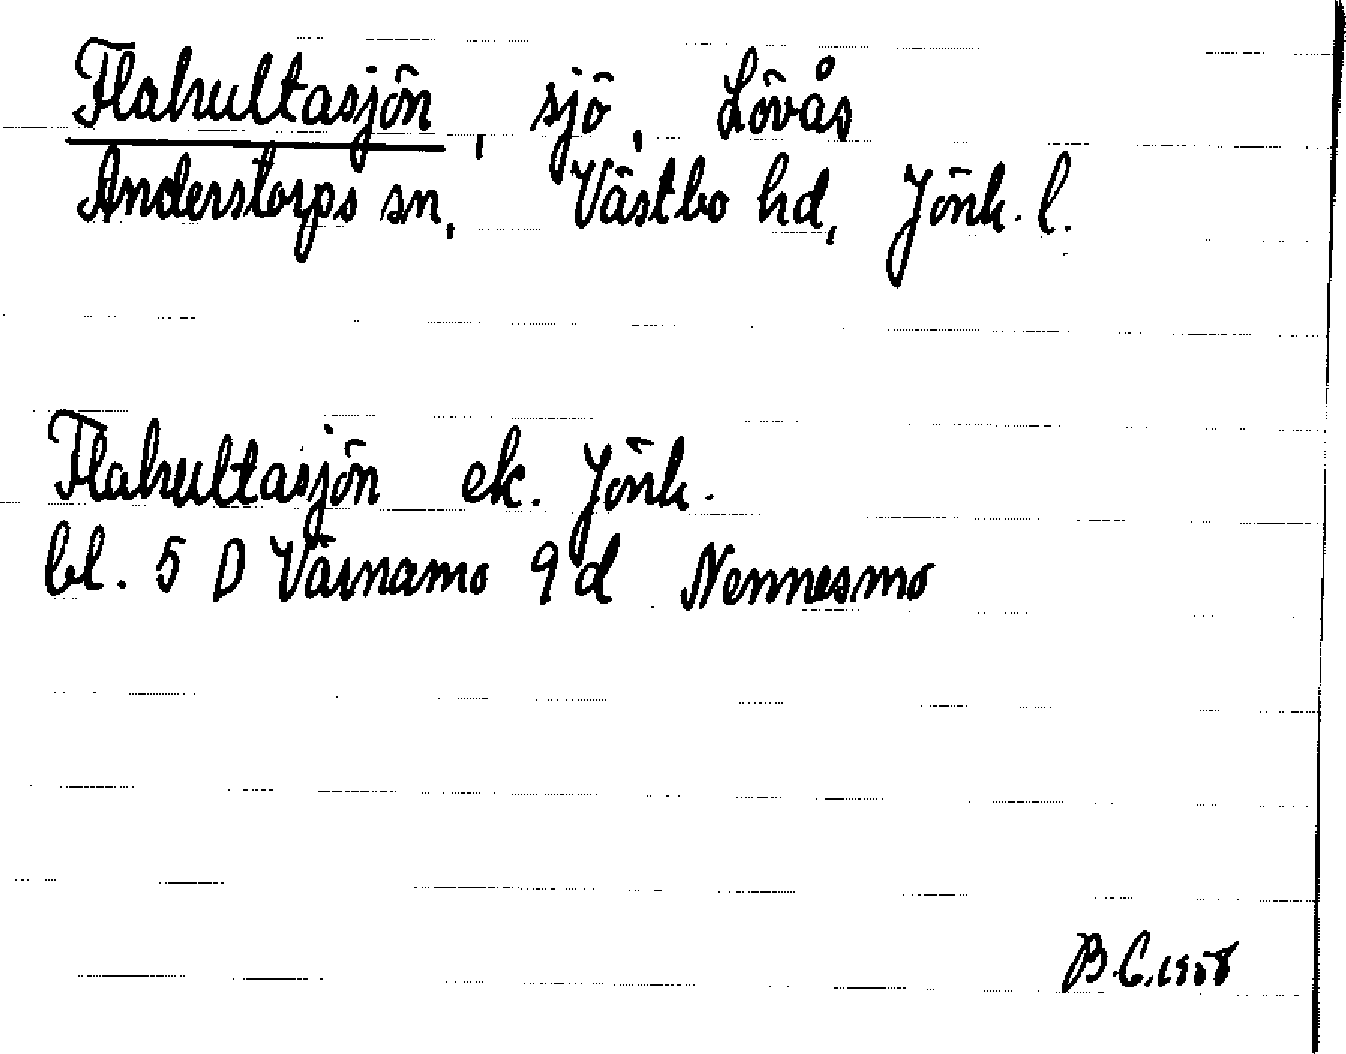 Flahultasjön, sjö, Lövås
Anderstorps sn, Västbo hd, Jönk. l.
Flahultasjön ek. Jönk.
bl. 5 D Värnamo 9 d Nennesmo
B.C. 1958